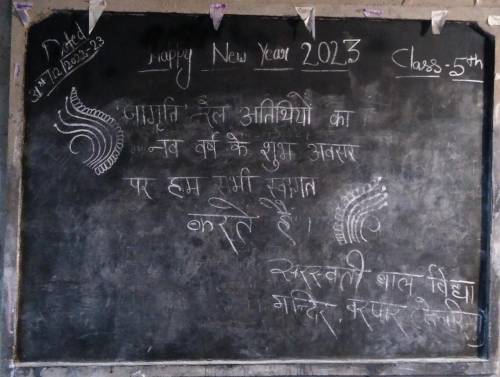 Dated
Happy New Year 2023
Class-5th
'जागृति' दल अतिथियों का
नव वर्ष के शुभ अवसर
पर हम सभी स्वागत
करते हैं।
सरस्वती बाल विद्या
मन्दिर, बरपार